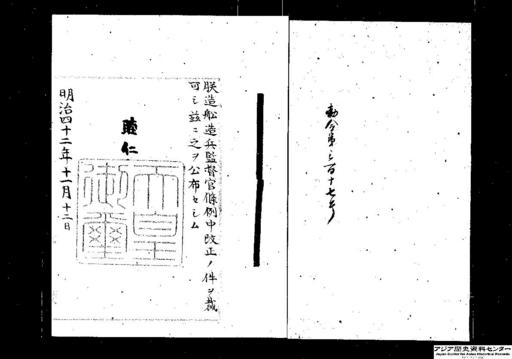 勅令第三百十七号
朕造船造兵監督官條例中改正ノ件ヲ裁
可シ茲ニ之ヲ公布セシム
睦仁
天皇
御璽
明治四十二年十一月十二日
アジア歴史資料センター
Japan Center for Asian Historical Records